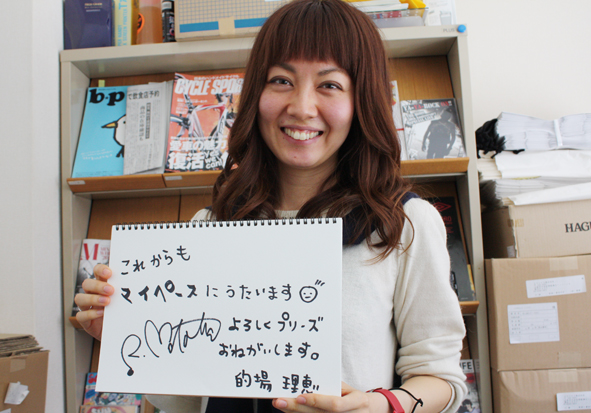 b*p
CYCLE SPO
ROCK
HAGU
これからも
マイペースにうたいます
よろしくプリーズ
おねがいします。
的場 理恵